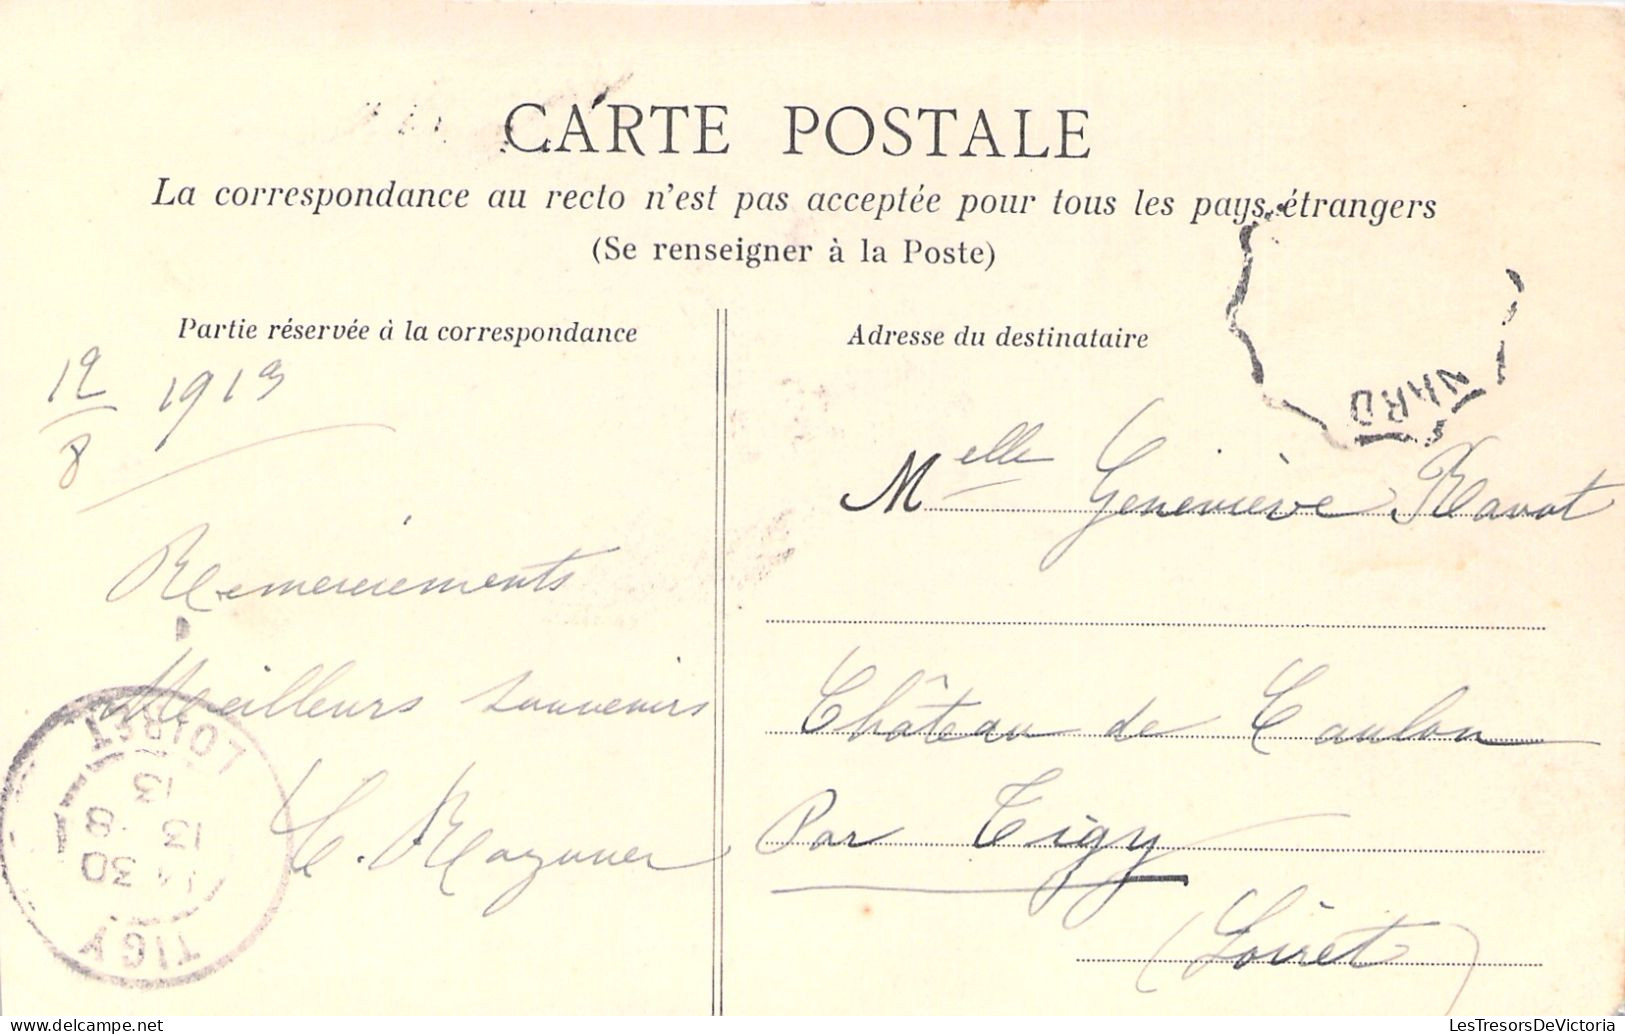 CARTE POSTALE
La correspondance au recto n'est pas acceptée pour tous les pays étrangers
(Se renseigner à la Poste)
Partie réservée à la correspondance
12/8 1913
Remerciements
Meilleurs souvenirs
Adresse du destinataire
Melle Geneviève Ravot
Château de Caulon
Par Tigy
(Loiret)
TIGY
14 30
13 8
13
LOIRET
LesTresorsDeVictoria